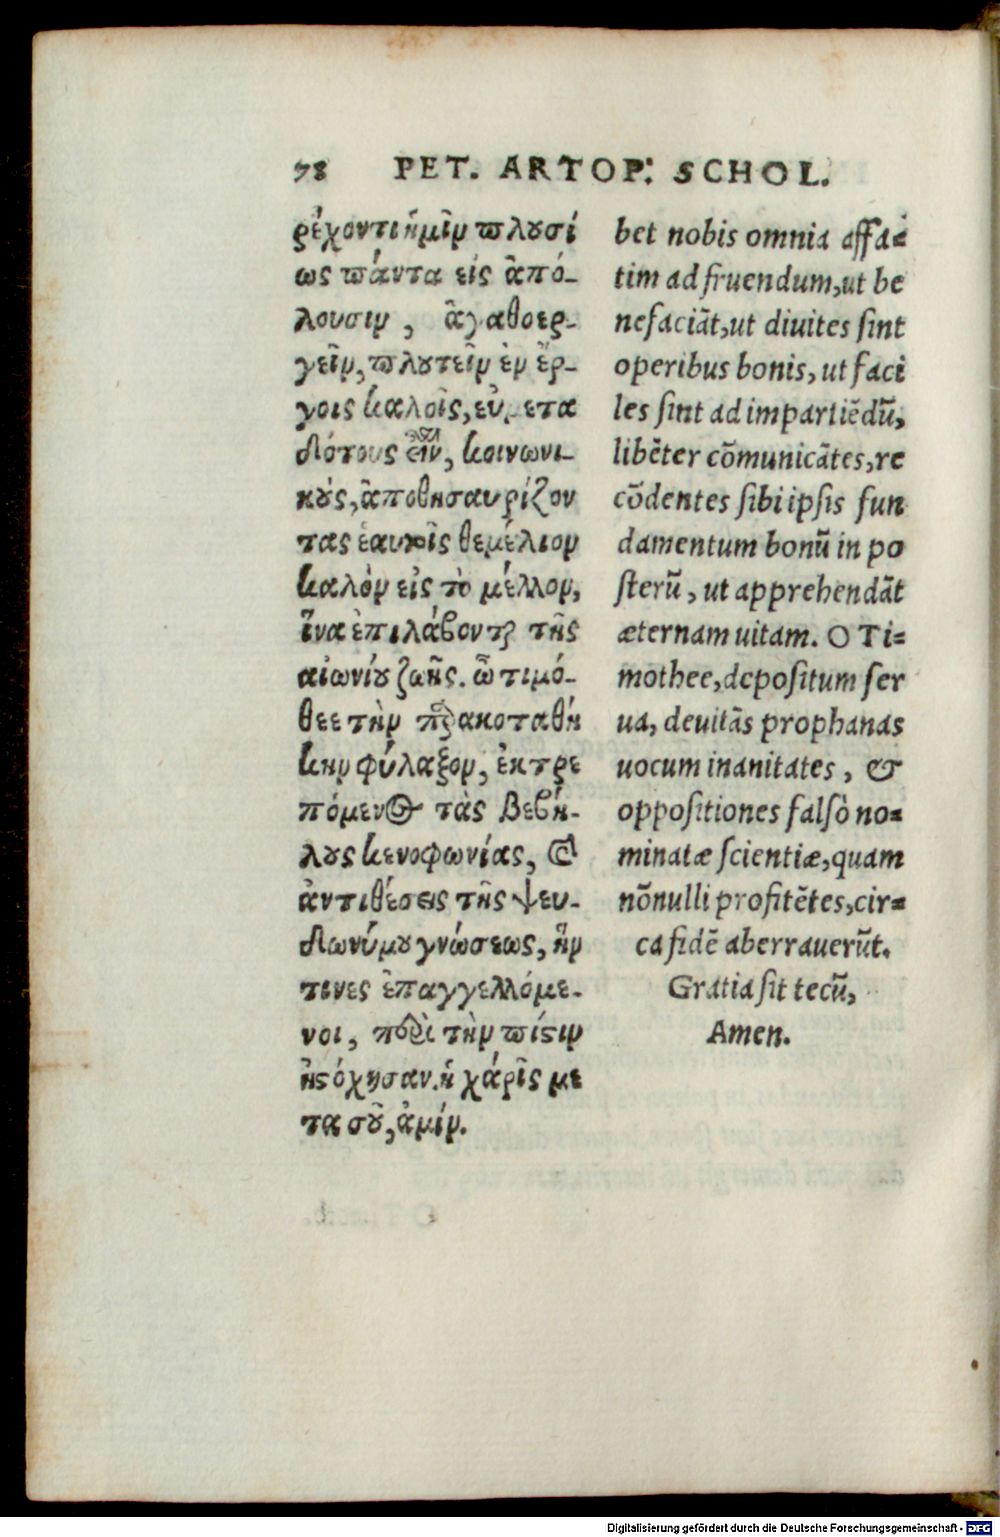 78 PET. ARTOP. SCHOL.
ρέχοντι ἡμῖν πλουσί
ως πάντα εἰς ἀπό-
λουσιν, ἀγαθοερ-
γεῖν, πλουτεῖν ἐν ἔρ-
γοις καλοῖς, εὐμετα
δότους εἶναι, κοινωνι-
κούς, ἀποθησαυρίζον
τας ἑαυτοῖς θεμέλιον
καλὸν εἰς τὸ μέλλον,
ἵνα ἐπιλάβονται τῆς
αἰωνίου ζωῆς. ὦ τιμό-
θεε τὴν παρακαταθή
κην φύλαξον, ἐκτρε
πόμενος τὰς βεβή-
λους κενοφωνίας, καὶ
ἀντιθέσεις τῆς ψευ-
δωνύμου γνώσεως, ἥν
τινες ἐπαγγελλόμε-
νοι, περὶ τὴν πίστιν
ἠστόχησαν. ἡ χάρις με
τα σοῦ, ἀμήν.
bet nobis omnia affa-
tim ad fruendum, ut be
nefaciāt, ut diuites sint
operibus bonis, ut faci
les sint ad impartiēdū,
libēter cōmunicātes, re
cōdentes sibi ipsis fun
damentum bonū in po
sterū, ut apprehendāt
æternam uitam. O Ti-
mothee, depositum ser
ua, deuitās prophanas
uocum inanitates, &
oppositiones falsò no-
minatæ scientiæ, quam
nōnulli profitētes, cir-
ca fidē aberrauerūt.
Gratia sit tecū,
Amen.
Digitalisierung gefördert durch die Deutsche Forschungsgemeinschaft - DFG